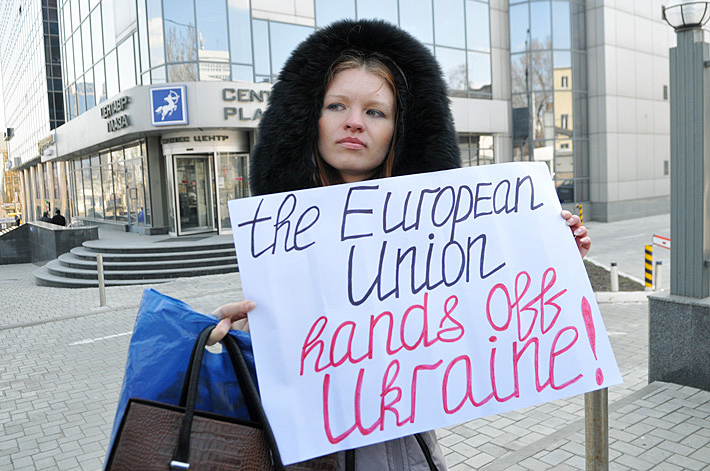 КЕНТАВР
ПЛАЗА
CENT
PLA
БИЗНЕС ЦЕНТР
the European
Union
hands off
Ukraine!